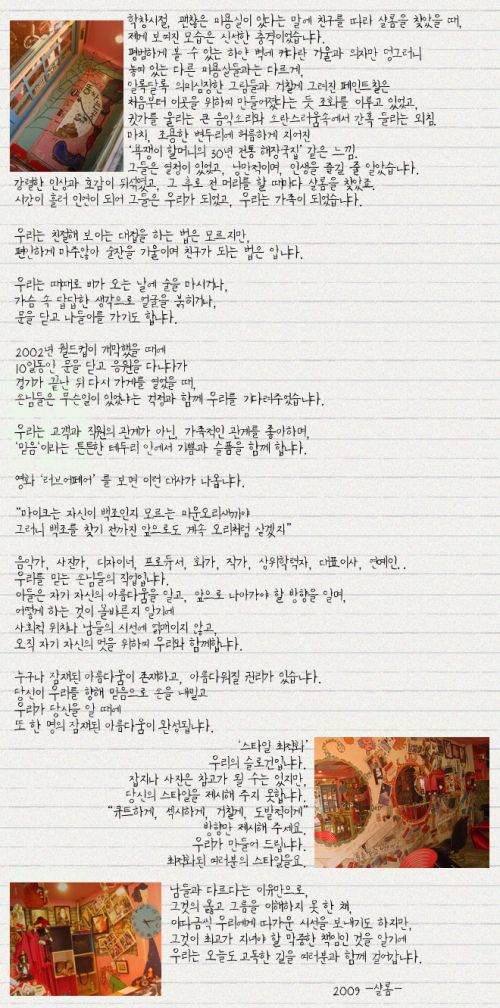 학창시절, 괜찮은 미용실이 있다는 말에 친구를 따라 살롬을 찾았을 때,
제게 보여진 모습은 신선한 충격이었습니다.
평범하게 볼 수 있는 하얀 벽에 커다란 거울과 의자만 덩그러니
놓여 있는 다른 미용실들과는 다르게,
알록달록 의미심장한 그림들과 거칠게 그려진 페인트칠은
처음부터 이곳을 위하여 만들어졌다는 듯 조화를 이루고 있었고,
귓가를 울리는 큰 음악소리와 소란스러움속에서 간혹 들리는 외침.
마치, 조용한 변두리에 허름하게 지어진
'욕쟁이 할머니의 30년 전통 해장국집' 같은 느낌.
그들은 열정이 있었고, 낭만적이며, 인생을 즐길 줄 알았습니다.
강렬한 인상과 호감이 뒤섞였고, 그 후로 전 머리를 할 때마다 살롬을 찾았죠.
시간이 흘러 인연이 되어 그들은 우리가 되었고, 우리는 가족이 되었습니다.
우리는 친절해 보이는 대접을 하는 법은 모르지만,
편안하게 마주앉아 술잔을 기울이며 친구가 되는 법은 압니다.
우리는 때때로 비가 오는 날에 술을 마시거나,
가슴 속 답답한 생각으로 얼굴을 붉히거나,
문을 닫고 나들이를 가기도 합니다.
2002년 월드컵이 개막했을 때에
10일동안 문을 닫고 응원을 다니다가
경기가 끝난 뒤 다시 가게를 열었을 때,
손님들은 무슨일이 있었냐는 걱정과 함께 우리를 기다려주었습니다.
우리는 고객과 직원의 관계가 아닌, 가족적인 관계를 좋아하며,
'믿음'이라는 튼튼한 테두리 안에서 기쁨과 슬픔을 함께 합니다.
영화 '러브어페어' 를 보면 이런 대사가 나옵니다.
"마이크는 자신이 백조인지 모르는 미운오리새끼야
그러니 백조를 찾기 전까진 앞으로도 계속 오리처럼 살겠지"
음악가, 사진가, 디자이너, 프로듀서, 화가, 작가, 상위학력자, 대표이사, 연예인..
우리를 믿는 손님들의 직업입니다.
이들은 자기 자신의 아름다움을 알고, 앞으로 나아가야 할 방향을 알며,
어떻게 하는 것이 올바른지 알기에
사회적 위치나 남들의 시선에 얽매이지 않고,
오직 자기 자신의 멋을 위하여 우리와 함께합니다.
누구나 잠재된 아름다움이 존재하고, 아름다워질 권리가 있습니다.
당신이 우리를 향해 믿음으로 손을 내밀고
우리가 당신을 알 때에
또 한 명의 잠재된 아름다움이 완성됩니다.
'스타일 최적화'
우리의 슬로건입니다.
잡지나 사진은 참고가 될 수는 있지만,
당신의 스타일을 제시해 주지 못합니다.
"큐트하게, 섹시하게, 거칠게, 도발적이게"
방향만 제시해 주세요.
우리가 만들어 드립니다.
최적화된 여러분의 스타일을요.
남들과 다르다는 이유만으로,
그것의 옳고 그름을 이해하지 못 한 채,
이따금씩 우리에게 따가운 시선을 보내기도 하지만,
그것이 최고가 지녀야 할 막중한 책임인 것을 알기에
우리는 오늘도 고독한 길을 여러분과 함께 걸어갑니다.
2009 -살롬-